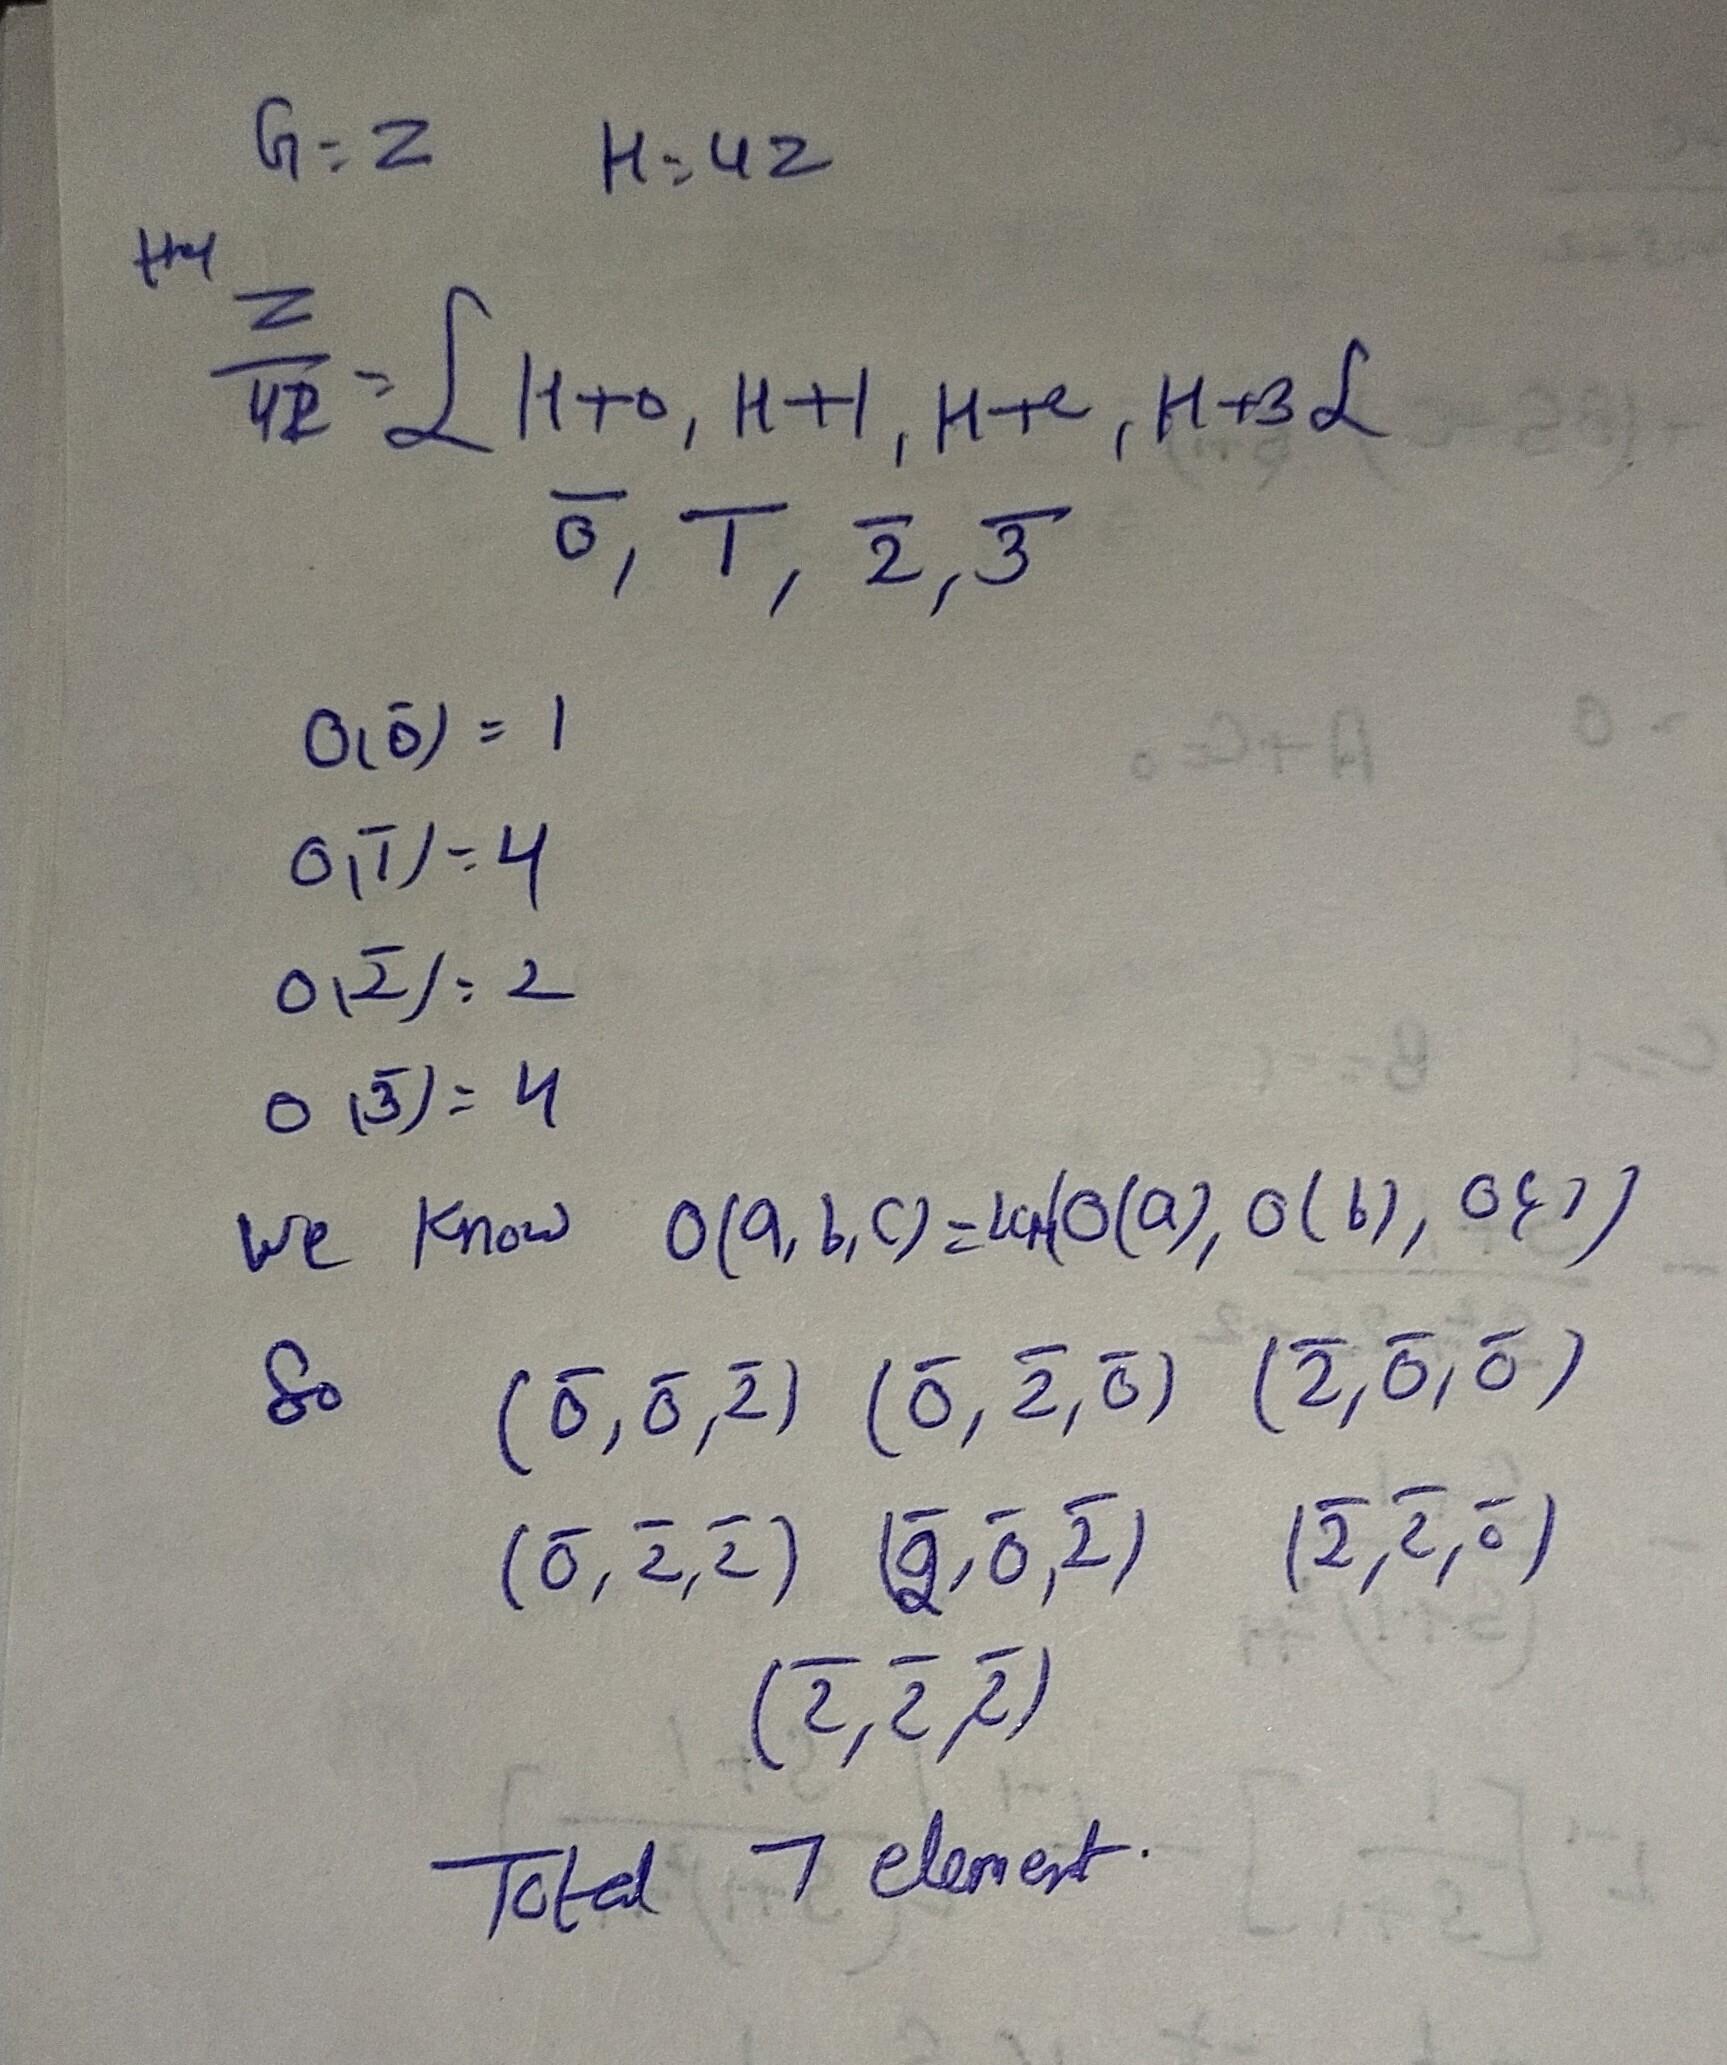 G=Z H=4Z
Z
4Z = { H+0, H+1, H+2, H+3 }
0̅, 1̅, 2̅, 3̅
O(0̅) = 1
O(1̅) = 4
O(2̅) = 2
O(3̅) = 4
We Know O(a,b,c)=LCM(O(a), O(b), O(c))
So (0̅,0̅,2̅) (0̅,2̅,0̅) (2̅,0̅,0̅)
(0̅,2̅,2̅) (2̅,0̅,2̅) (2̅,2̅,0̅)
(2̅,2̅,2̅)
Total 7 element.